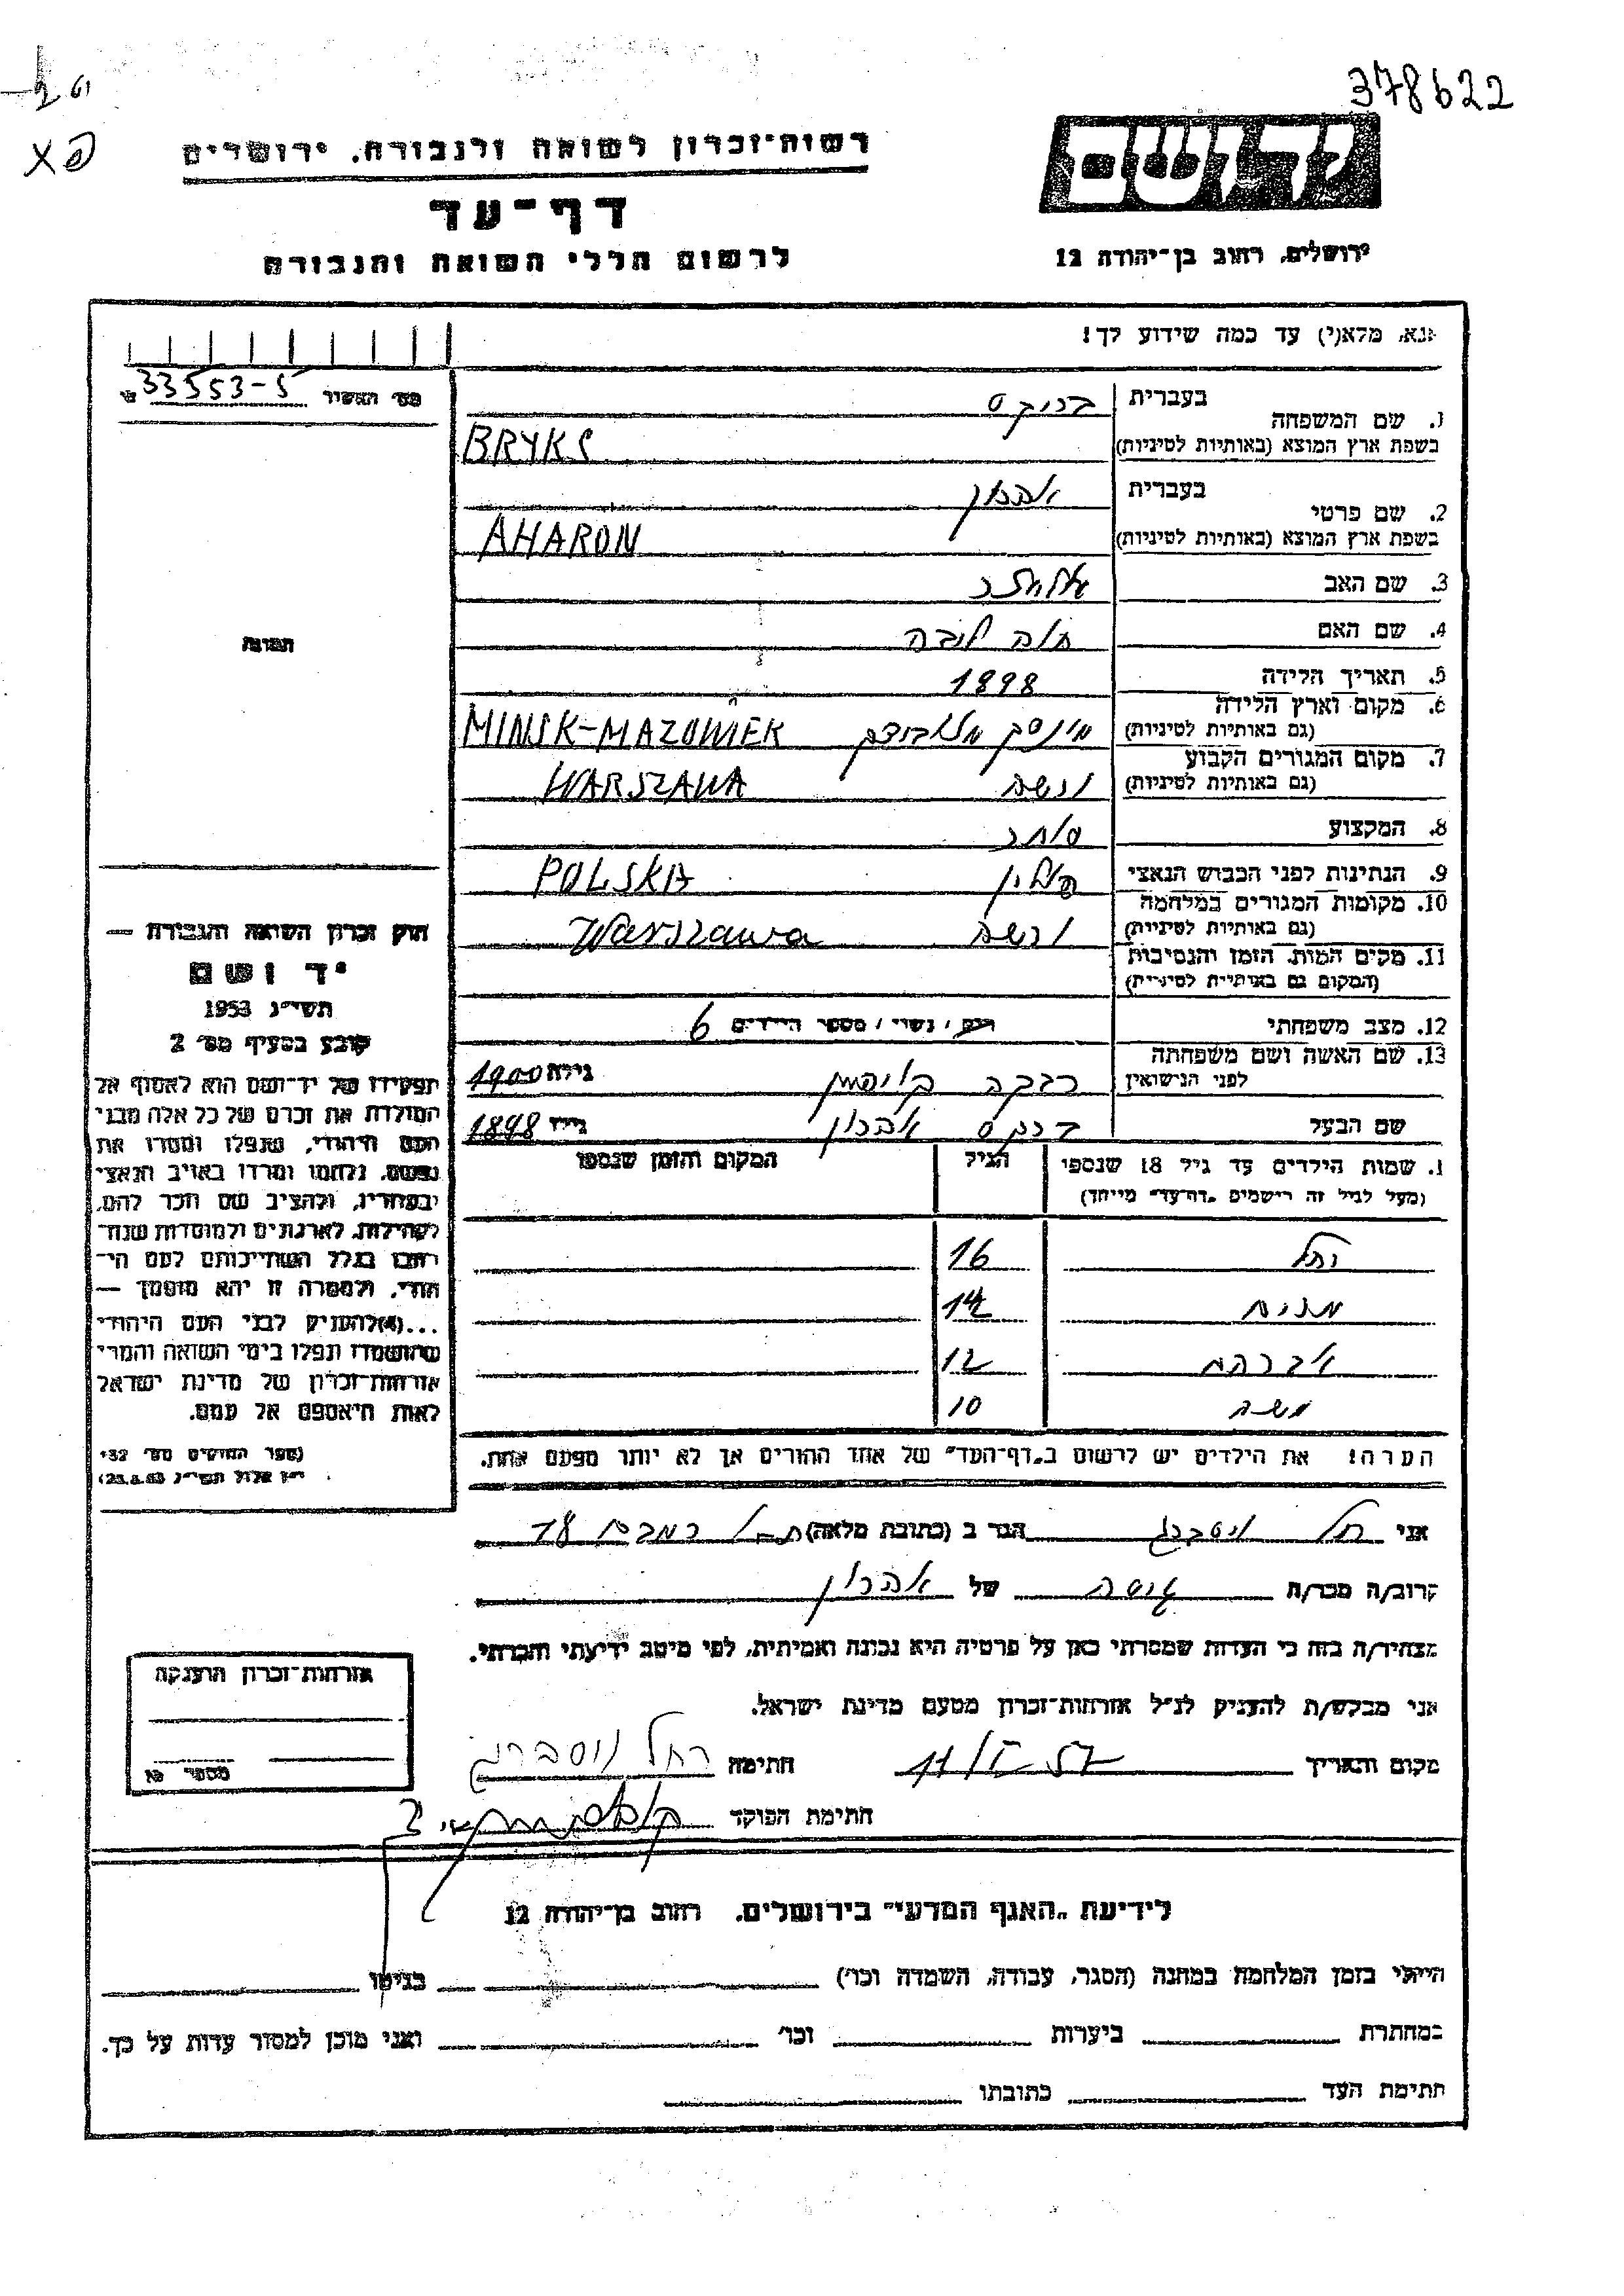 378622
יד ושם
ירושלים, רחוב בן־יהודה 12
רשות־זכרון לשואה ולגבורה, ירושלים
דף־עד
לרשום חללי השואה והגבורה
אנא, מלא(י) עד כמה שידוע לך!
מס׳ האשיר 33553-5
1. שם המשפחה
בעברית בריקס
בשפת ארץ המוצא (באותיות לטיניות) BRYKS
2. שם פרטי
בעברית אהרון
בשפת ארץ המוצא (באותיות לטיניות) AHARON
3. שם האב אליעזר
4. שם האם חיה ליבה
5. תאריך הלידה 1898
6. מקום וארץ הלידה
(גם באותיות לטיניות) מינסק מזוביצק MINSK-MAZOWIEK
7. מקום המגורים הקבוע
(גם באותיות לטיניות) ורשה WARSZAWA
8. המקצוע סוחר
9. הנתינות לפני הכבוש הנאצי פולין POLSKA
10. מקומות המגורים במלחמה
(גם באותיות לטיניות) ורשה Warszawa
11. מקום המות, הזמן והנסיבות
(המקום גם באותיות לטיניות)
12. מצב משפחתי רוק / נשוי / מספר הילדים 6
13. שם האשה ושם משפחתה
לפני הנישואין רבקה גילה 1900
שם הבעל בריקס אהרון גילו 1898
1. שמות הילדים עד גיל 18 שנספו
(מעל לגיל זה רישמים „דף־עד״ מיוחד)
הגיל
המקום והזמן שנספו
רחל 16
מרים 14
אברהם 12
משה 10
הערה! את הילדים יש לרשום ב„דף־העד״ של אחד ההורים אך לא יותר מפעם אחת.
התמונה
חוק זכרון השואה והגבורה —
יד ושם
תשי״ג 1953
קובע בסעיף מס׳ 2
תפקידו של יד־ושם הוא לאסוף אל
המולדת את זכרם של כל אלה מבני
העם היהודי, שנפלו ומסרו את
נפשם, נלחמו ומרדו באויב הנאצי
ובעוזריו, ולהציב שם וזכר להם,
לקהילות, לארגונים ולמוסדות שנח־
רחבו בגלל השתייכותם לעם הי־
הודי, ולמטרה זו יהא מוסמך —
...(4) להעניק לבני העם היהודי
שהושמדו ונפלו בימי השואה והמרי
אזרחות־זכרון של מדינת ישראל
לאות היאספם אל עמם.
(ספר החוקים מס׳ 132
י״ז אלול תשי״ג 28.8.53)
אני רחל ויסברג הגר ב (כתובת מלאה)
קרוב/ה מכר/ה גיסה של אהרון
מצהיר/ה בזה כי העדות שמסרתי כאן על פרטיה היא נכונה ואמיתית, לפי מיטב ידיעתי והכרתי.
אני מבקש/ת להעניק לנ״ל אזרחות־זכרון מטעם מדינת ישראל.
מקום והתאריך 11/V 57 חתימה רחל ויסברג
חתימת הפוקד
אזרחות־זכרון הוענקה
מספר
לידיעת „האגף המדעי״ בירושלים, רחוב בן־יהודה 12
הייתי בזמן המלחמה במחנה (הסגר, עבודה, השמדה וכו׳) בגיטו
במחתרת ביערות וכו׳ ואני מוכן למסור עדות על כך.
חתימת העד כתובתו